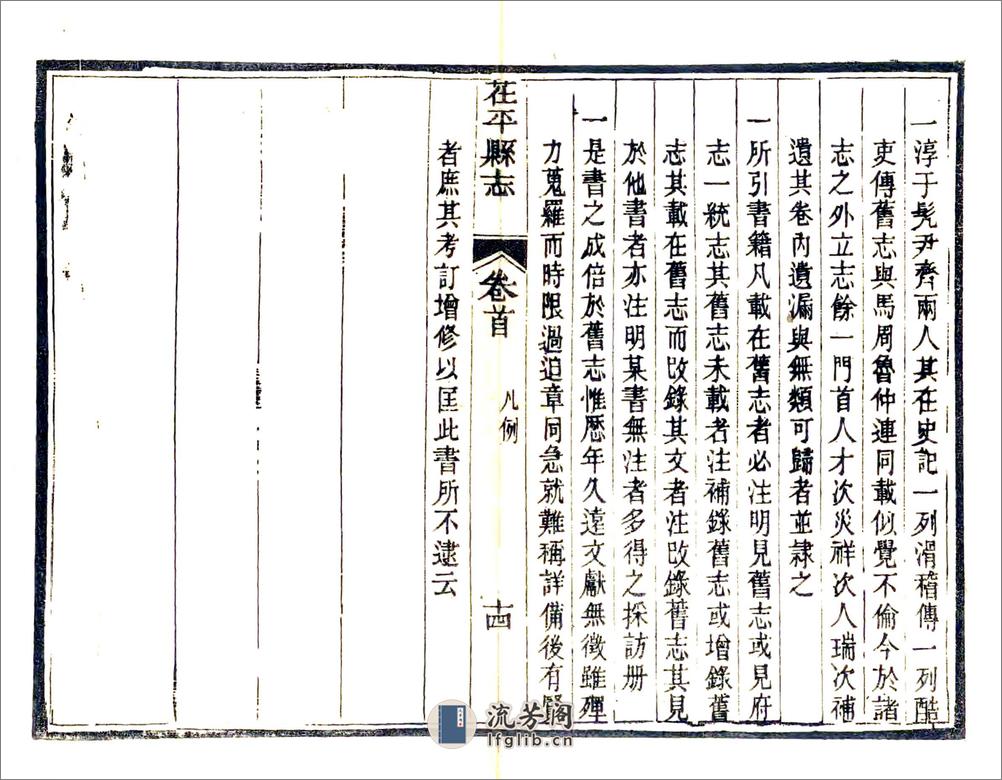 一淳于髡尹齊兩人其在史記一列滑稽傳一列酷
吏傳舊志與馬周魯仲連同載似覺不倫今於諸
志之外立志餘一門首人才次災祥次人瑞次補
遺其卷內遺漏與無類可歸者並隷之
一所引書籍凡載在舊志者必注明見舊志或見府
志一統志其舊志未載者注補錄舊志或增錄舊
志其載在舊志而改錄其文者注改錄舊志其見
於他書者亦注明某書無注者多得之採訪册
一是書之成倍於舊志惟歷年久遠文獻無徵雖殫
力蒐羅而時限過迫章同急就難稱詳備後有賢
者庶其考訂增修以匡此書所不逮云
茌平縣志 卷首 凡例 十四
流芳閣
lfglib.cn